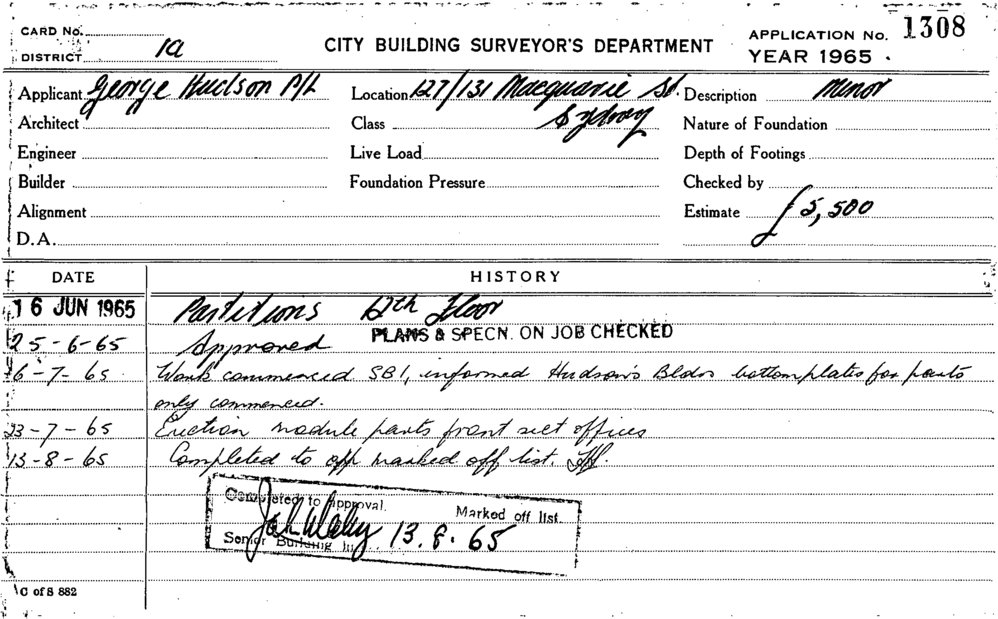 CARD No.
DISTRICT 1a
CITY BUILDING SURVEYOR'S DEPARTMENT
APPLICATION No. 1308
YEAR 1965.
Applicant George Hudson P/L
Location 127/131 Macquarie St. Sydney
Description Minor
Architect
Class
Nature of Foundation
Engineer
Live Load
Depth of Footings
Builder
Foundation Pressure
Checked by
Alignment
Estimate £5,500
D.A.
DATE HISTORY
16 JUN 1965 Partitions 12th Floor
PLANS & SPECN. ON JOB CHECKED
25-6-65 Approved
16-7-65 Work commenced. SBI, informed Hudson's Bldrs bottom plates for parts
only commenced.
23-7-65 Erection module parts front sect offices
13-8-65 Completed to app marked off list.
Completed to Approval.
Marked off list.
Senior Building In
13.8.65
C of S 882